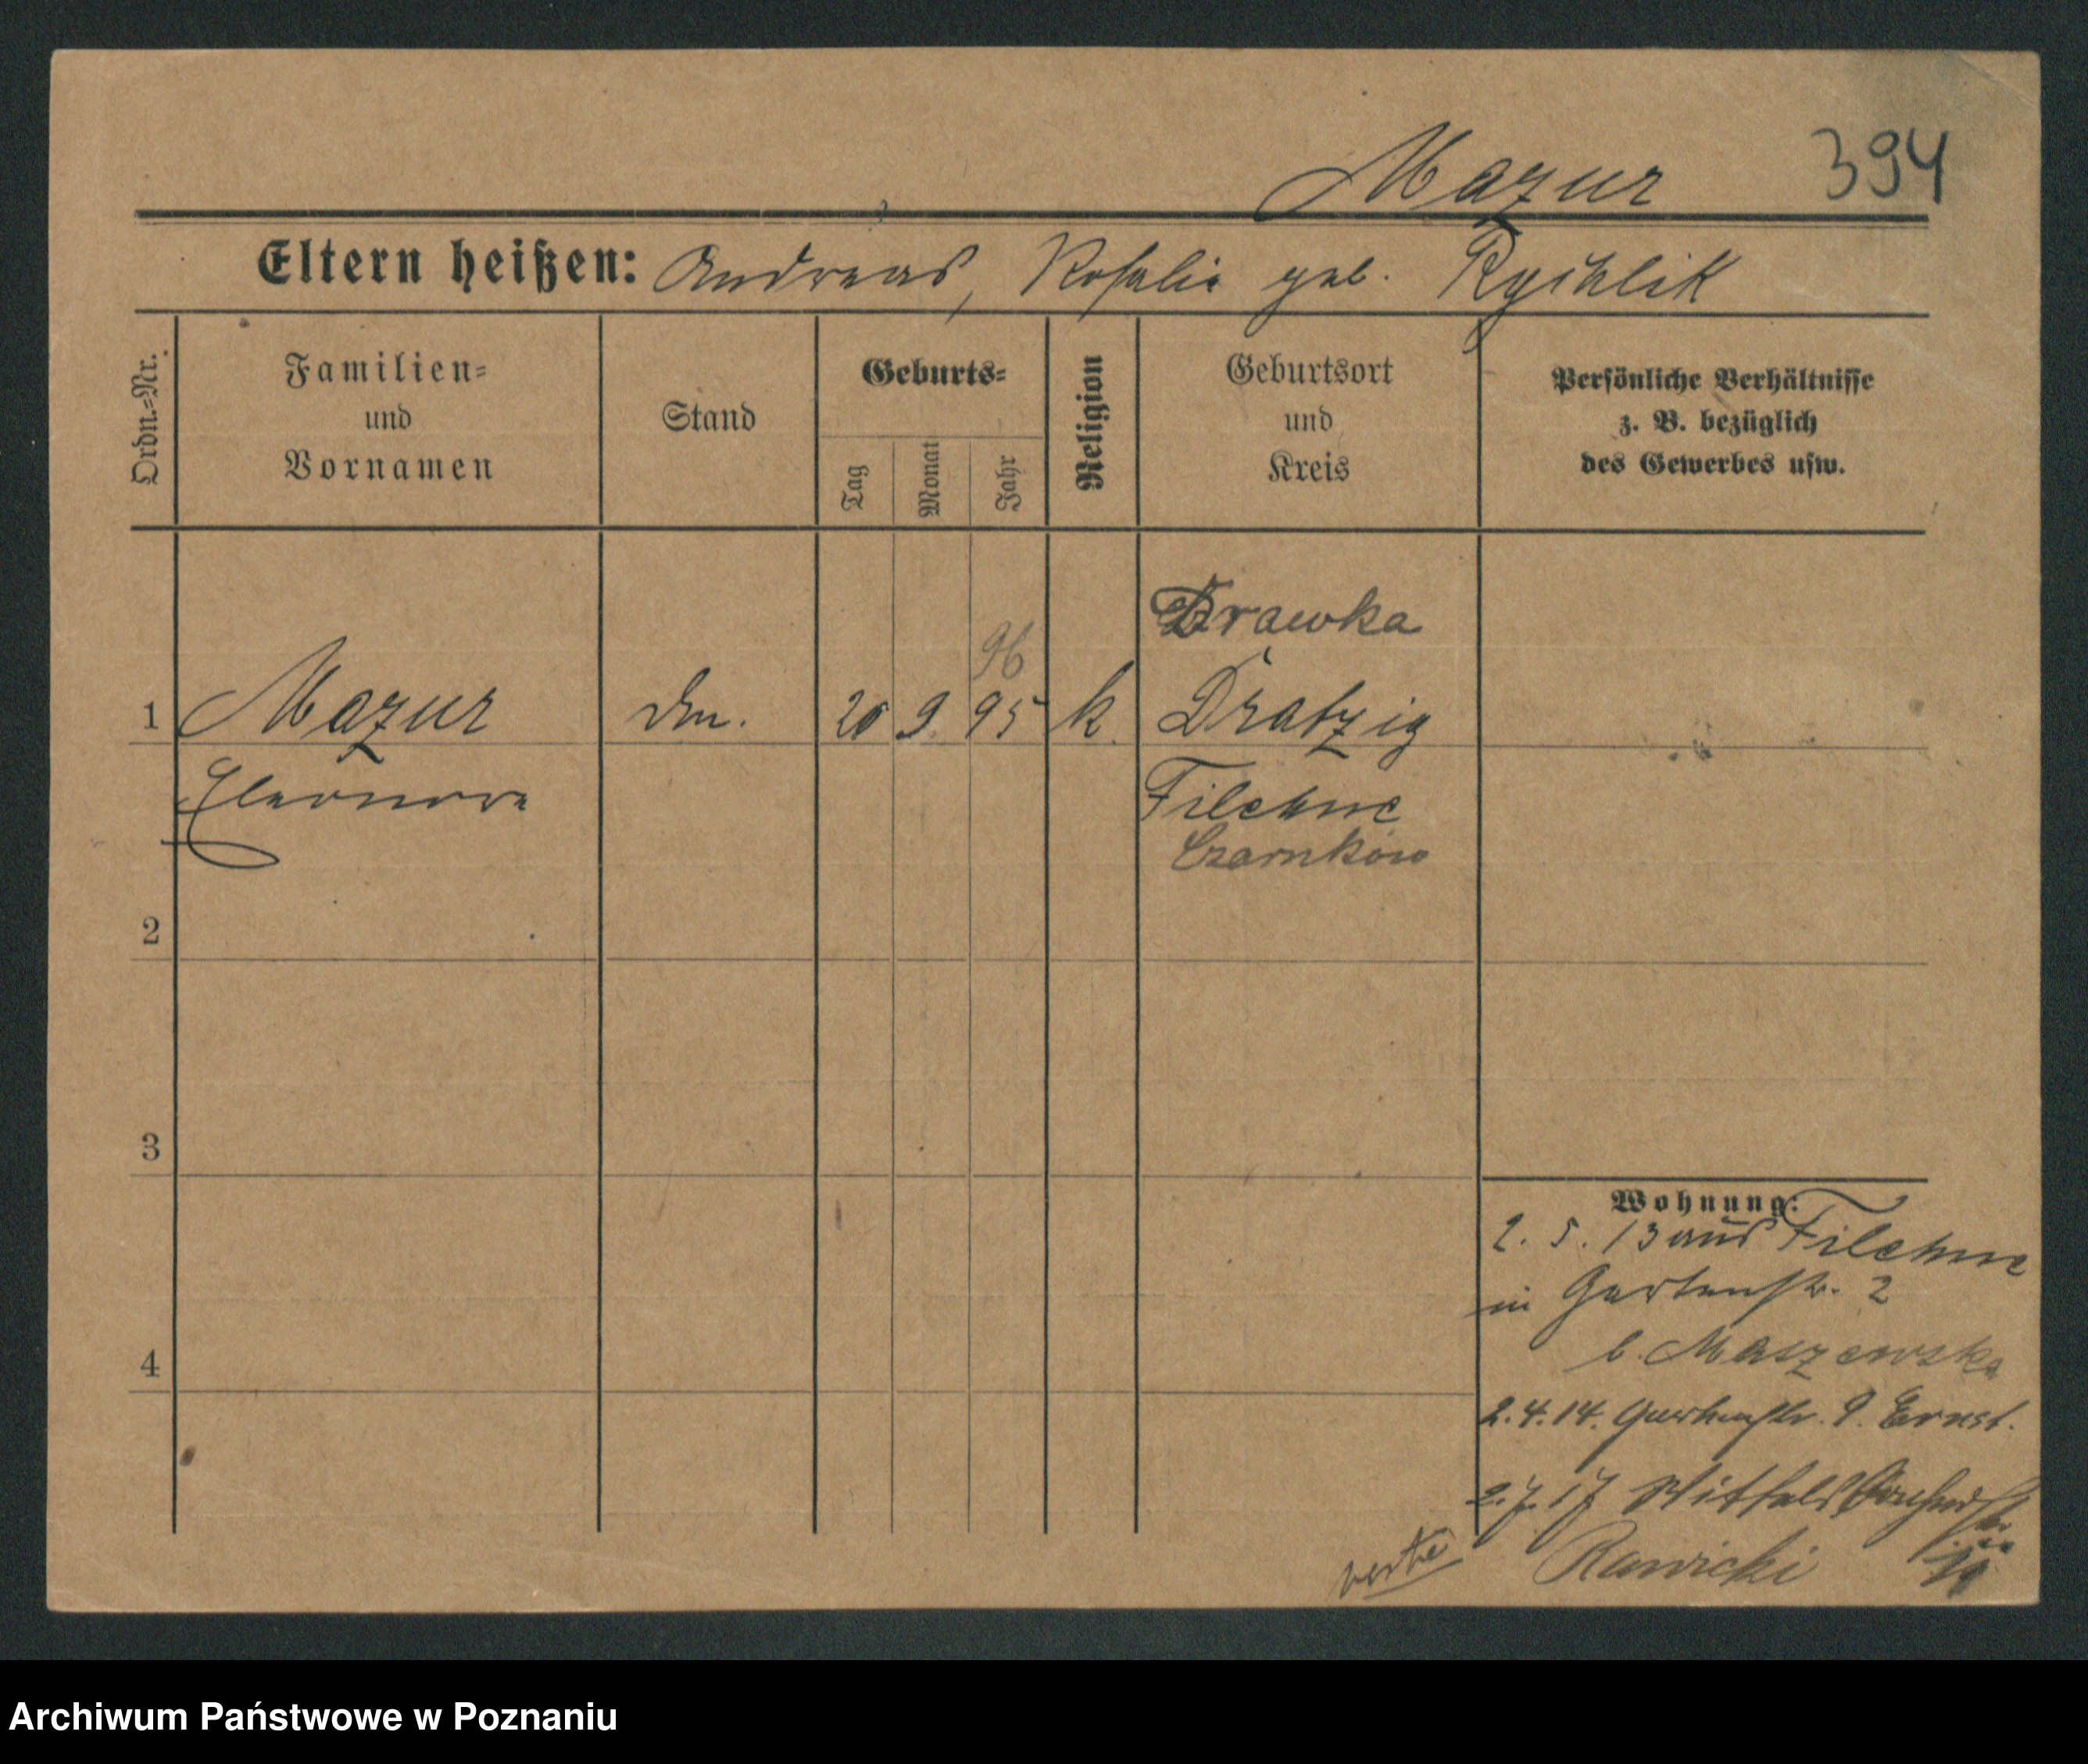 Mazur 394
Eltern heißen: Andreas, Rosalie geb. Rychlik
Ordn.=Nr.
Familien=
und
Vornamen
Stand
Geburts=
Tag
Monat
Jahr
Religion
Geburtsort
und
Kreis
Persönliche Verhältnisse
z. B. bezüglich
des Gewerbes usw.
Drawka
96
1 Mazur 20 9. 95 k. Dratzig
Eleonore Filehne
Czarnków
2
3
4
Wohnung:
2. 5. 13 aus Filehne
in Gartenstr. 2
b. Maszewska
2.4.14. Gartenstr. 9. Ernst.
2.7.17
verte Rawicki
Archiwum Państwowe w Poznaniu